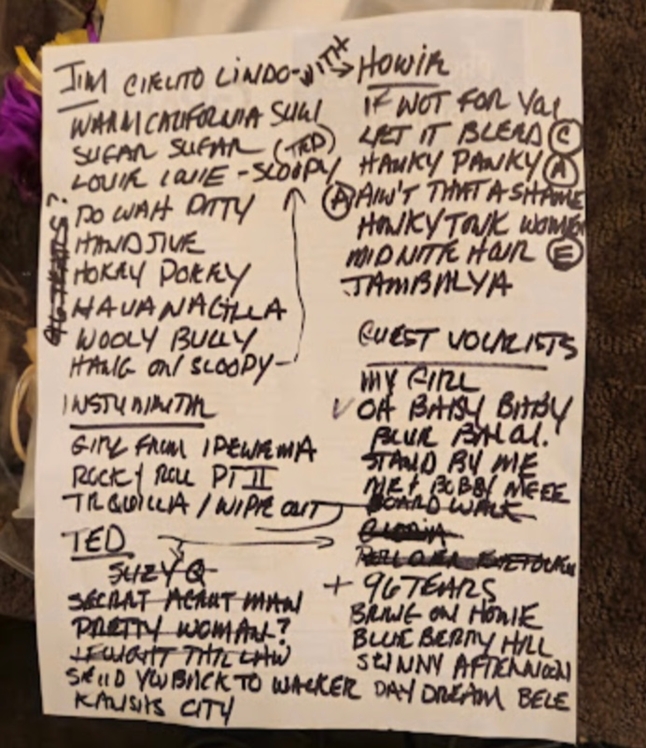 JIM CIELITO LINDO-WITH
WARM CALIFORNIA SUN
SUGAR SUGAR (TED)
LOUIE LOUIE - SLOOPY
DO WAH DITTY
HANDJIVE
HOKEY POKEY
HAVANAGILLA
WOOLY BULLY
HANG ON SLOOPY
96 TEARS?
INSTUMENTAL
GIRL FROM IPENEMA
ROCK & ROLL PT II
TEQUILLA / WIPE OUT
TED
SUZY Q
SECRET AGENT MAN
PRETTY WOMAN?
I FOUGHT THE LAW
SEND YOU BACK TO WALKER
KANSAS CITY
HOWIE
IF NOT FOR YOU
LET IT BLEED C
HANKY PANKY A
A AIN'T THAT A SHAME
HONKY TONK WOMEN
MIDNITE HOUR E
JAMBALYA
GUEST VOCALISTS
MY GIRL
OH BABY BABY
BLUE BAYOU.
STAND BY ME
ME & BOBBY MEEE
BOARD WALK
GLORIA
ROLL OVER
+ 96 TEARS
BRING ON HOMIE
BLUE BERRY HILL
SUNNY AFTERNOON
DAY DREAM BELE